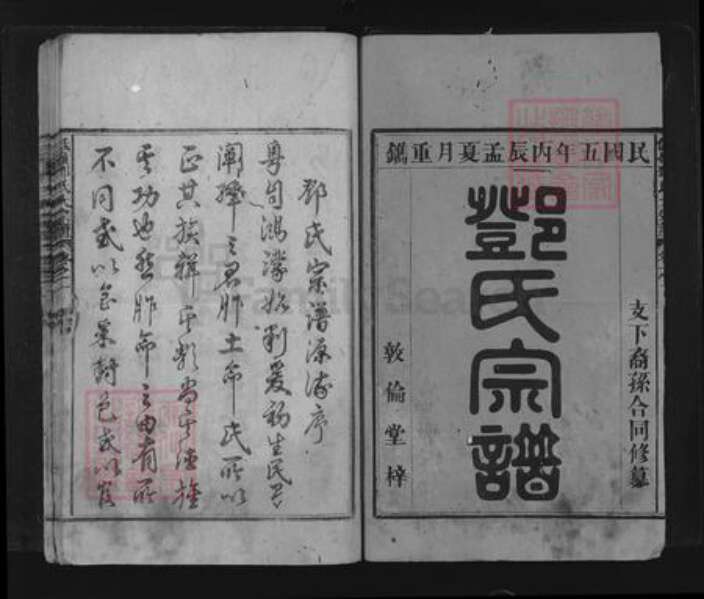 民國五年丙辰孟夏月重鐫
支下裔孫合同修纂
鄧氏宗譜
敦倫堂梓
鄧氏宗譜源流序
粵自鴻濛始判爰初生民其
闡繹之君胙土命氏所以
正其族辨其類尚其德旌
其功也然胙命之由有所
不同或以食采封邑或以官